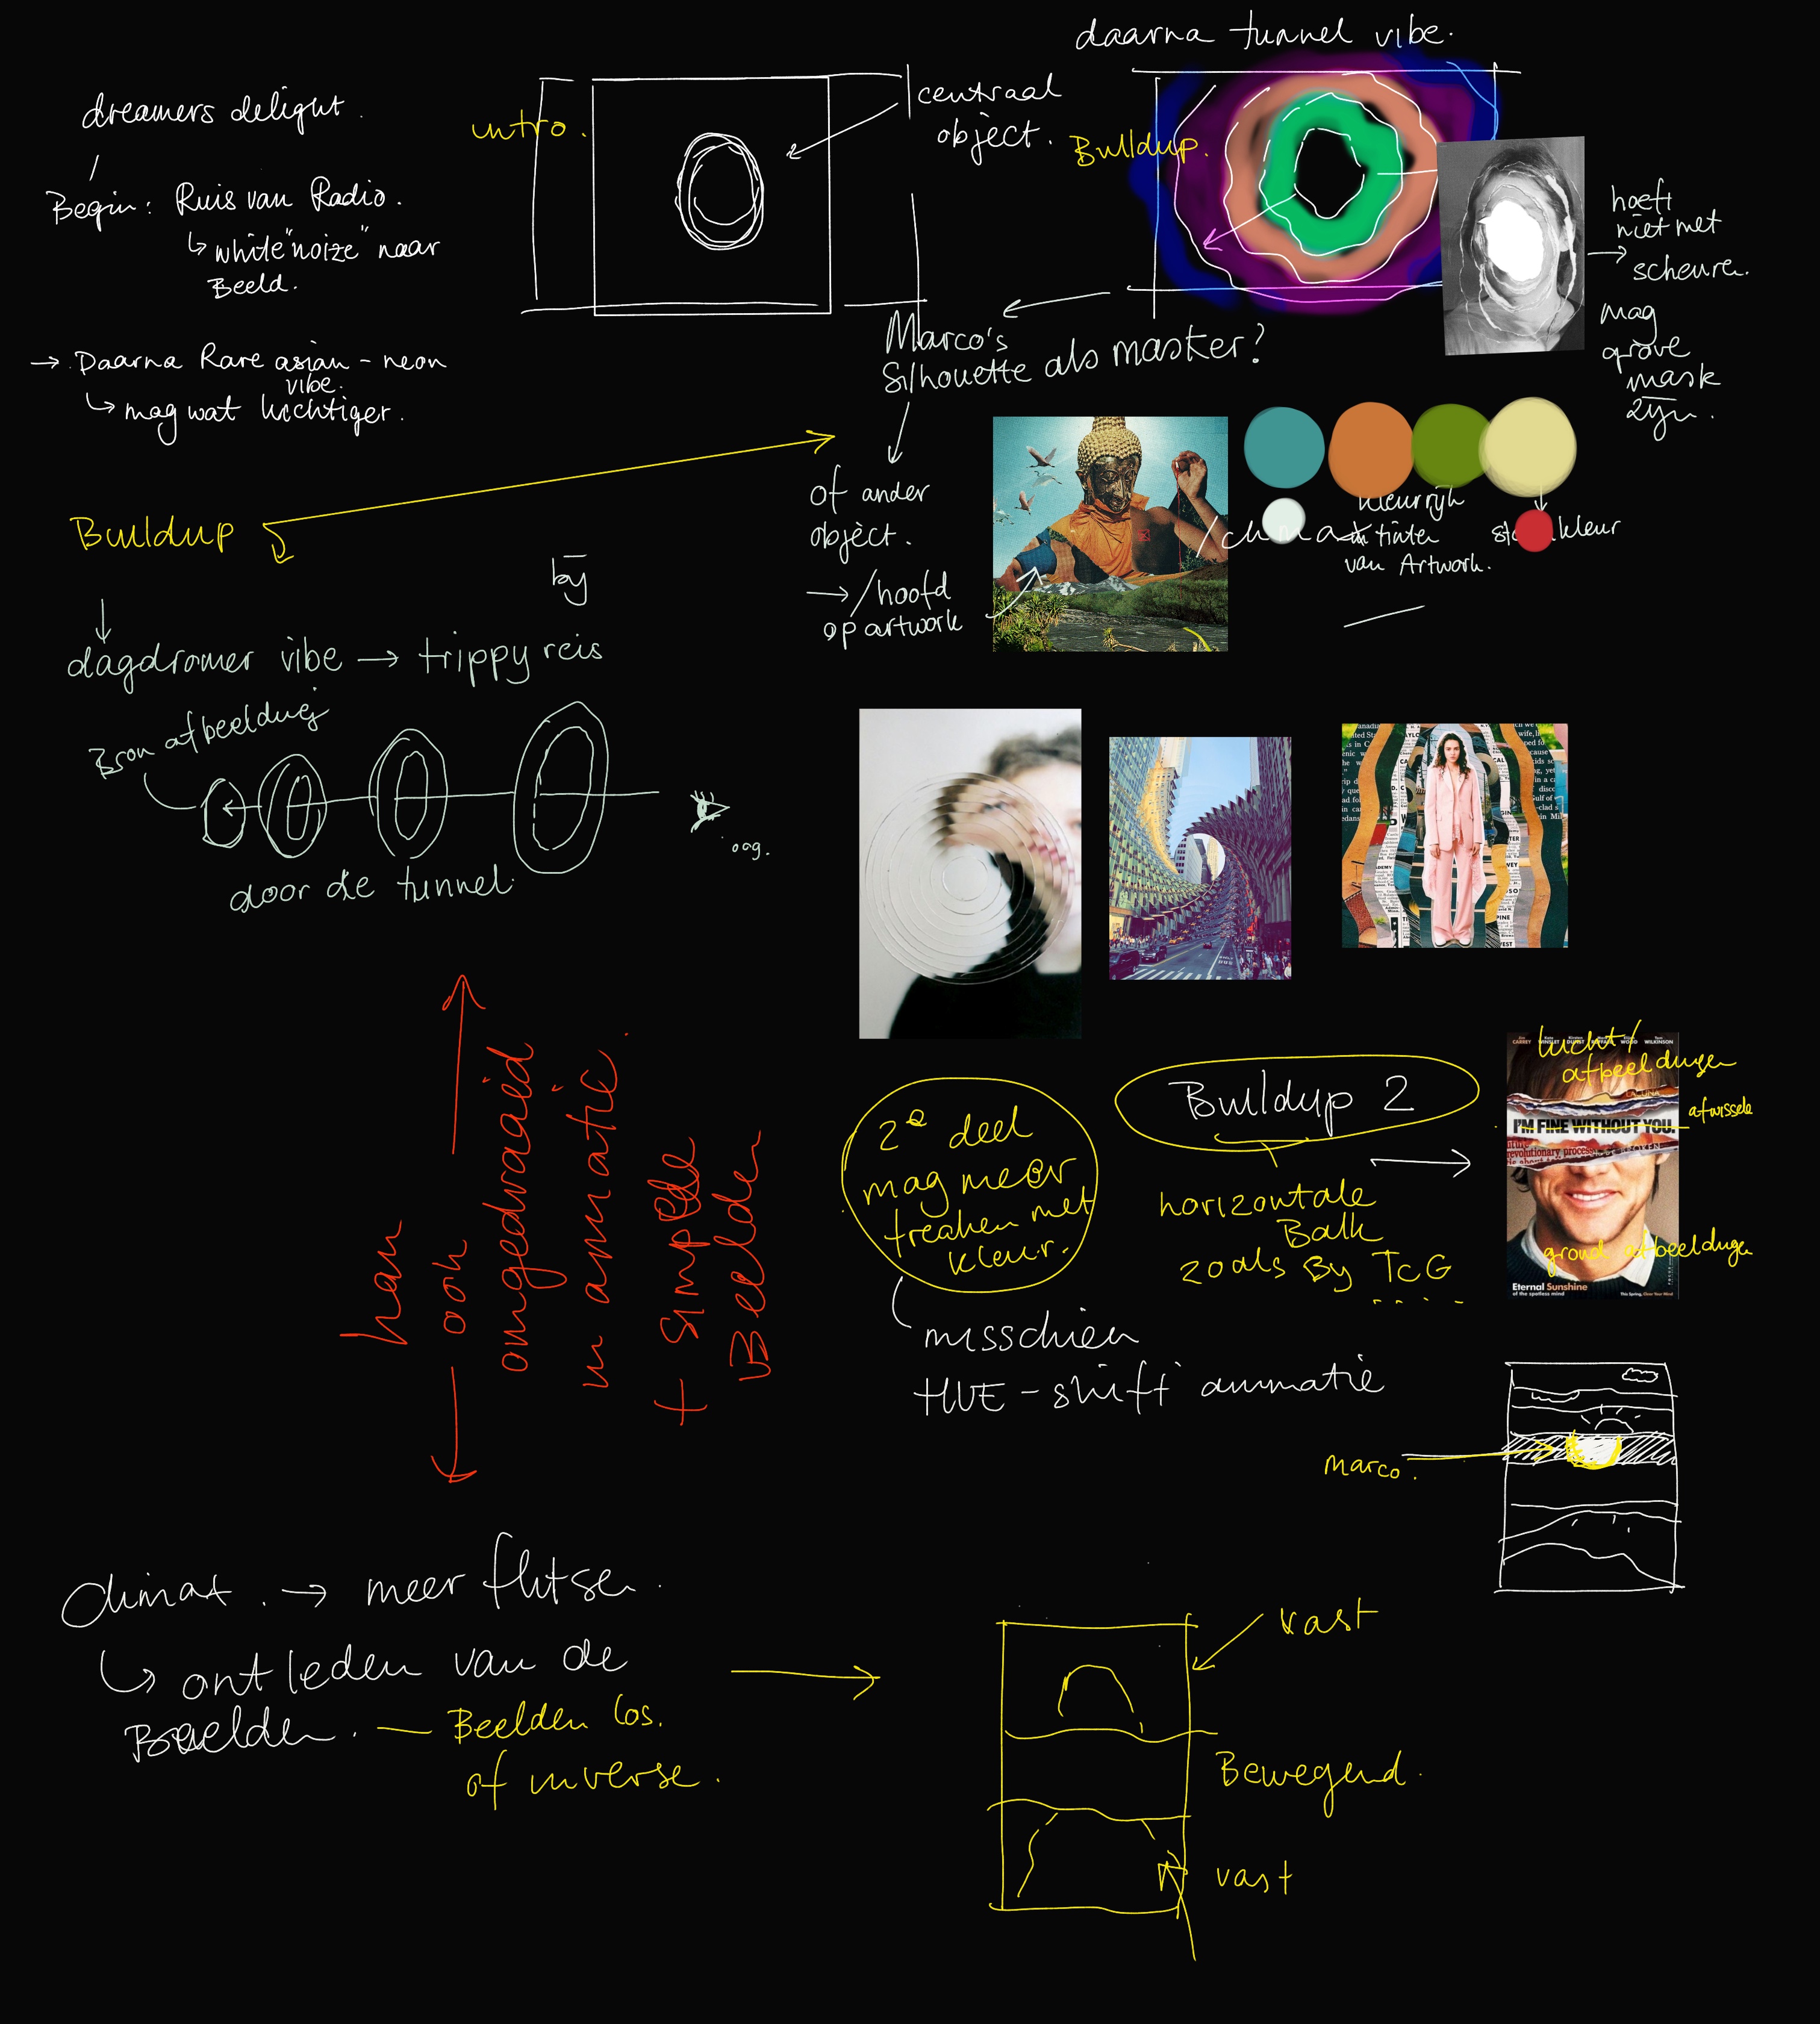 dreamers delight.
Begin: Ruis van Radio.
↳ white "noize" naar
Beeld.
→ Daarna Rare asian - neon
vibe.
↳ mag wat luchtiger.
intro.
centraal
object.
daarna tunnel vibe.
Buildup.
hoeft
niet met
→ scheuren.
mag
grove
mask
zijn.
Marco's
Silhouette als masker?
of ander
object.
→ /hoofd
op artwork
kleurrijk
in tinten
van Artwork.
kleur
Buildup
bij
dagdromer vibe → trippy reis
Bron afbeelding
oog.
door de tunnel.
kan
ook
omgedraaid
in animatie.
+ simpele
Beelden
2e deel
mag meer
treaken met
kleur.
misschien
HUE - shift animatie
Buildup 2
horizontale
Balk
zoals By TCG
lucht /
afbeeldingen
afwissele
I'M FINE WITHOUT YOU.
revolutionary process
grond afbeeldingen
Eternal Sunshine
of the spotless mind
marco.
Climax. → meer flitsen.
↳ ontleden van de
Beelden. — Beelden los.
of inverse.
vast
Bewegend.
vast